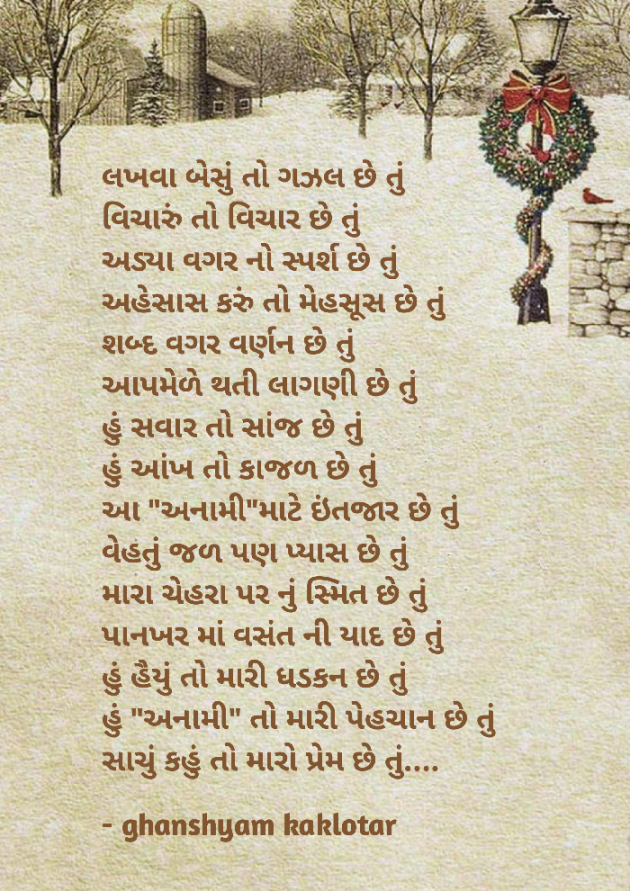 લખવા બેસું તો ગઝલ છે તું
વિચારું તો વિચાર છે તું
અડ્યા વગર નો સ્પર્શ છે તું
અહેસાસ કરું તો મેહસૂસ છે તું
શબ્દ વગર વર્ણન છે તું
આપમેળે થતી લાગણી છે તું
હું સવાર તો સાંજ છે તું
હું આંખ તો કાજળ છે તું
આ "અનામી"માટે ઇંતજાર છે તું
વેહતું જળ પણ પ્યાસ છે તું
મારા ચેહરા પર નું સ્મિત છે તું
પાનખર માં વસંત ની યાદ છે તું
હું હૈયું તો મારી ધડકન છે તું
હું "અનામી" તો મારી પેહચાન છે તું
સાચું કહું તો મારો પ્રેમ છે તું....
- ghanshyam kaklotar